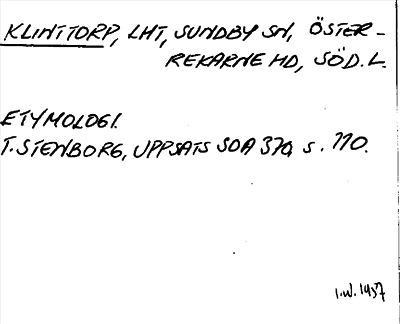 KLINTTORP, LHT, SUNDBY SN, ÖSTER-
REKARNE HD, SÖD. L.
ETYMOLOGI.
T. STENBORG, UPPSATS SOA 370, S. 110.
I.W. 1957